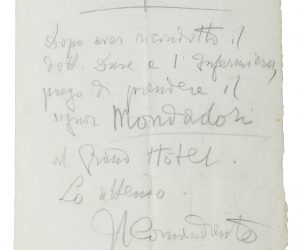 Dopo aver ricondotto il
dott. Duse e l'Infermiera,
prego di prendere il
signor Mondadori
al Grand Hotel.
Lo attendo.
Il Comandante